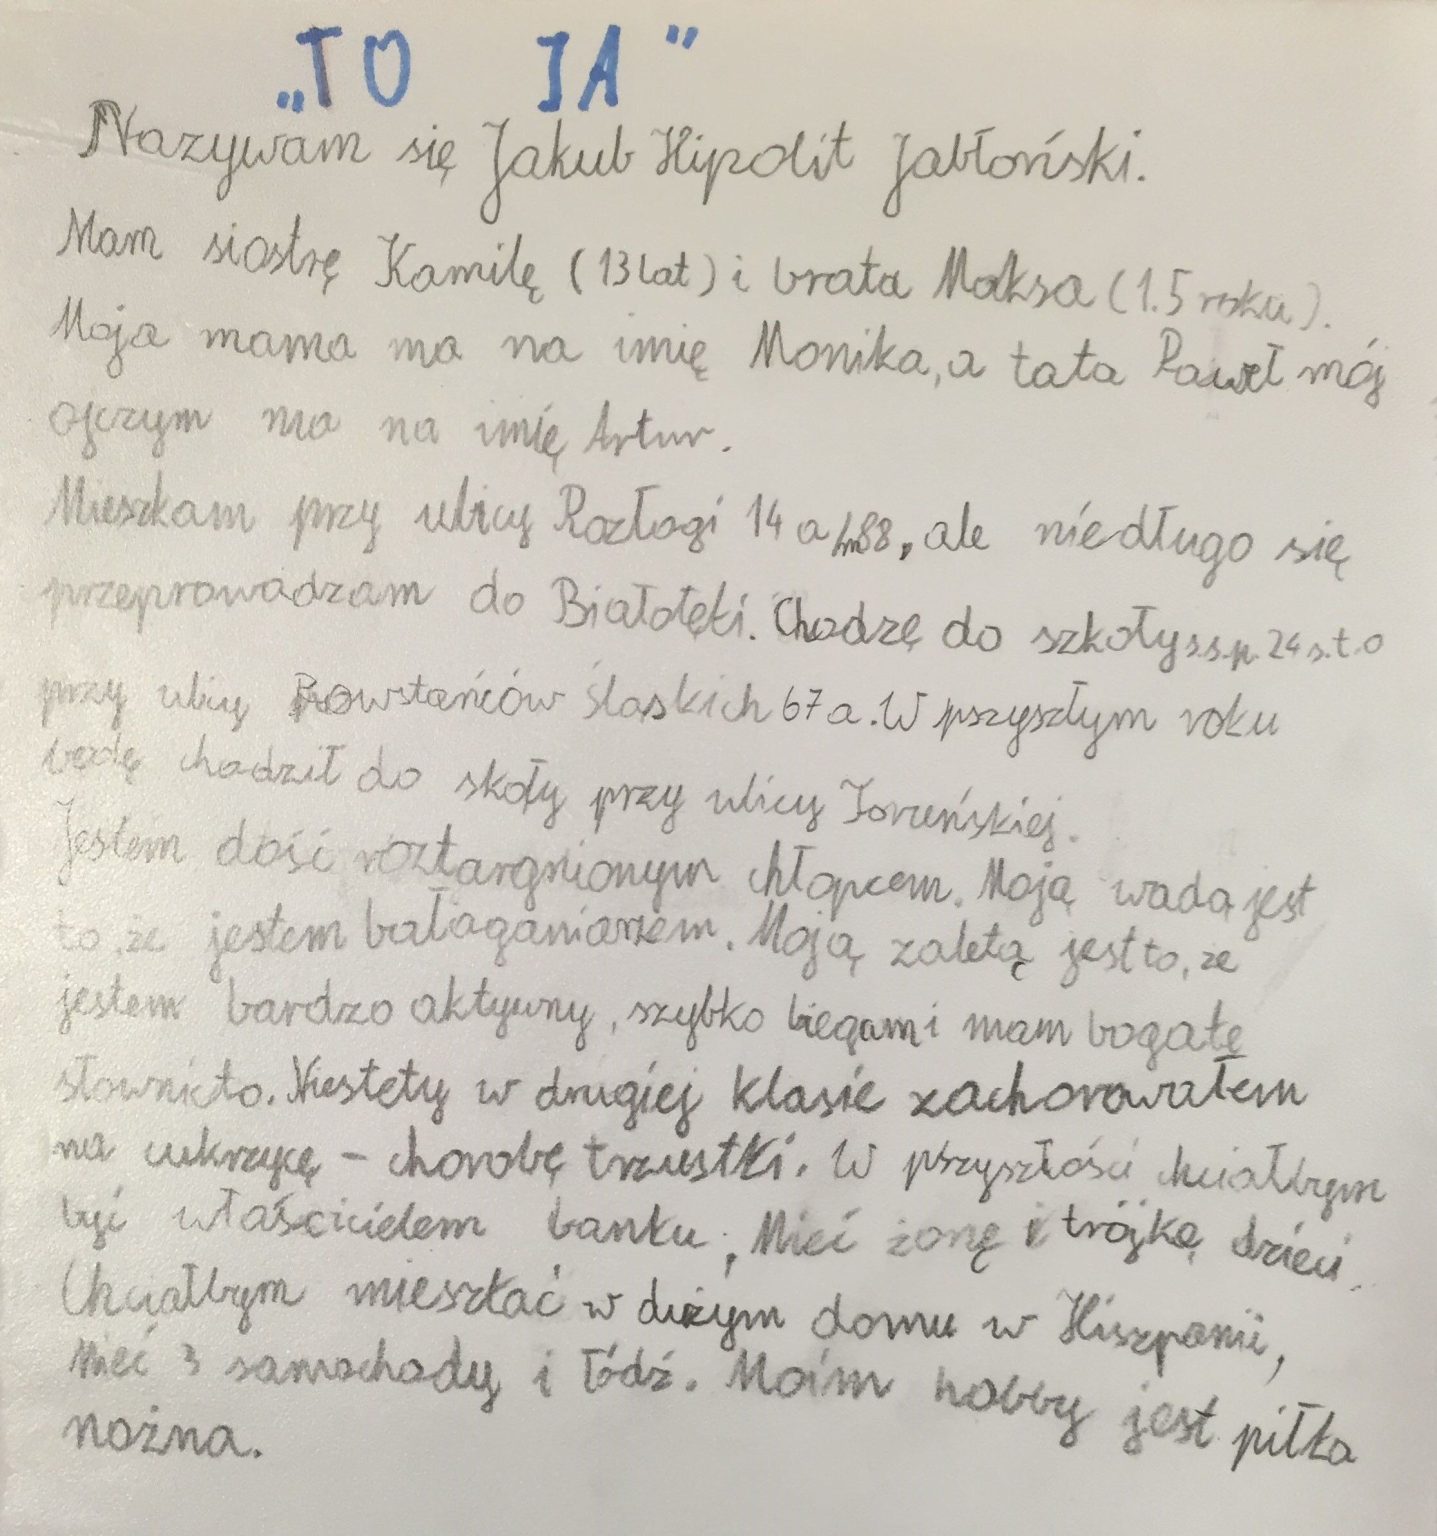 „TO JA”
Nazywam się Jakub Hipolit Jabłoński.
Mam siostrę Kamilę (13 lat) i brata Maksa (1.5 roku).
Moja mama ma na imię Monika, a tata Paweł mój
ojczym ma na imię Artur.
Mieszkam przy ulicy Rozłogi 14 a /m88, ale niedługo się
przeprowadzam do Białołęki. Chodzę do szkoły s.s.p. 24 s.t.o
przy ulicy Powstańców Śląskich 67 a. W pszyszłym roku
będę chodził do skoły przy ulicy Toruńskiej.
Jestem dość roztargnionym chłopcem. Moją wadą jest
to, że jestem bałaganiarzem. Moją zaletą jest to, że
jestem bardzo aktywny, szybko biegam i mam bogate
słownicto. Niestety w drugiej klasie zachorowałem
na cukrzycę – chorobę trzustki. W pszyszłości chciałbym
być właścicielem banku, Mieć żonę i trójkę dzieci.
Chciałbym mieszkać w dużym domu w Hiszpanii,
Mieć 3 samochody i łódź. Moim hobby jest piłka
nożna.